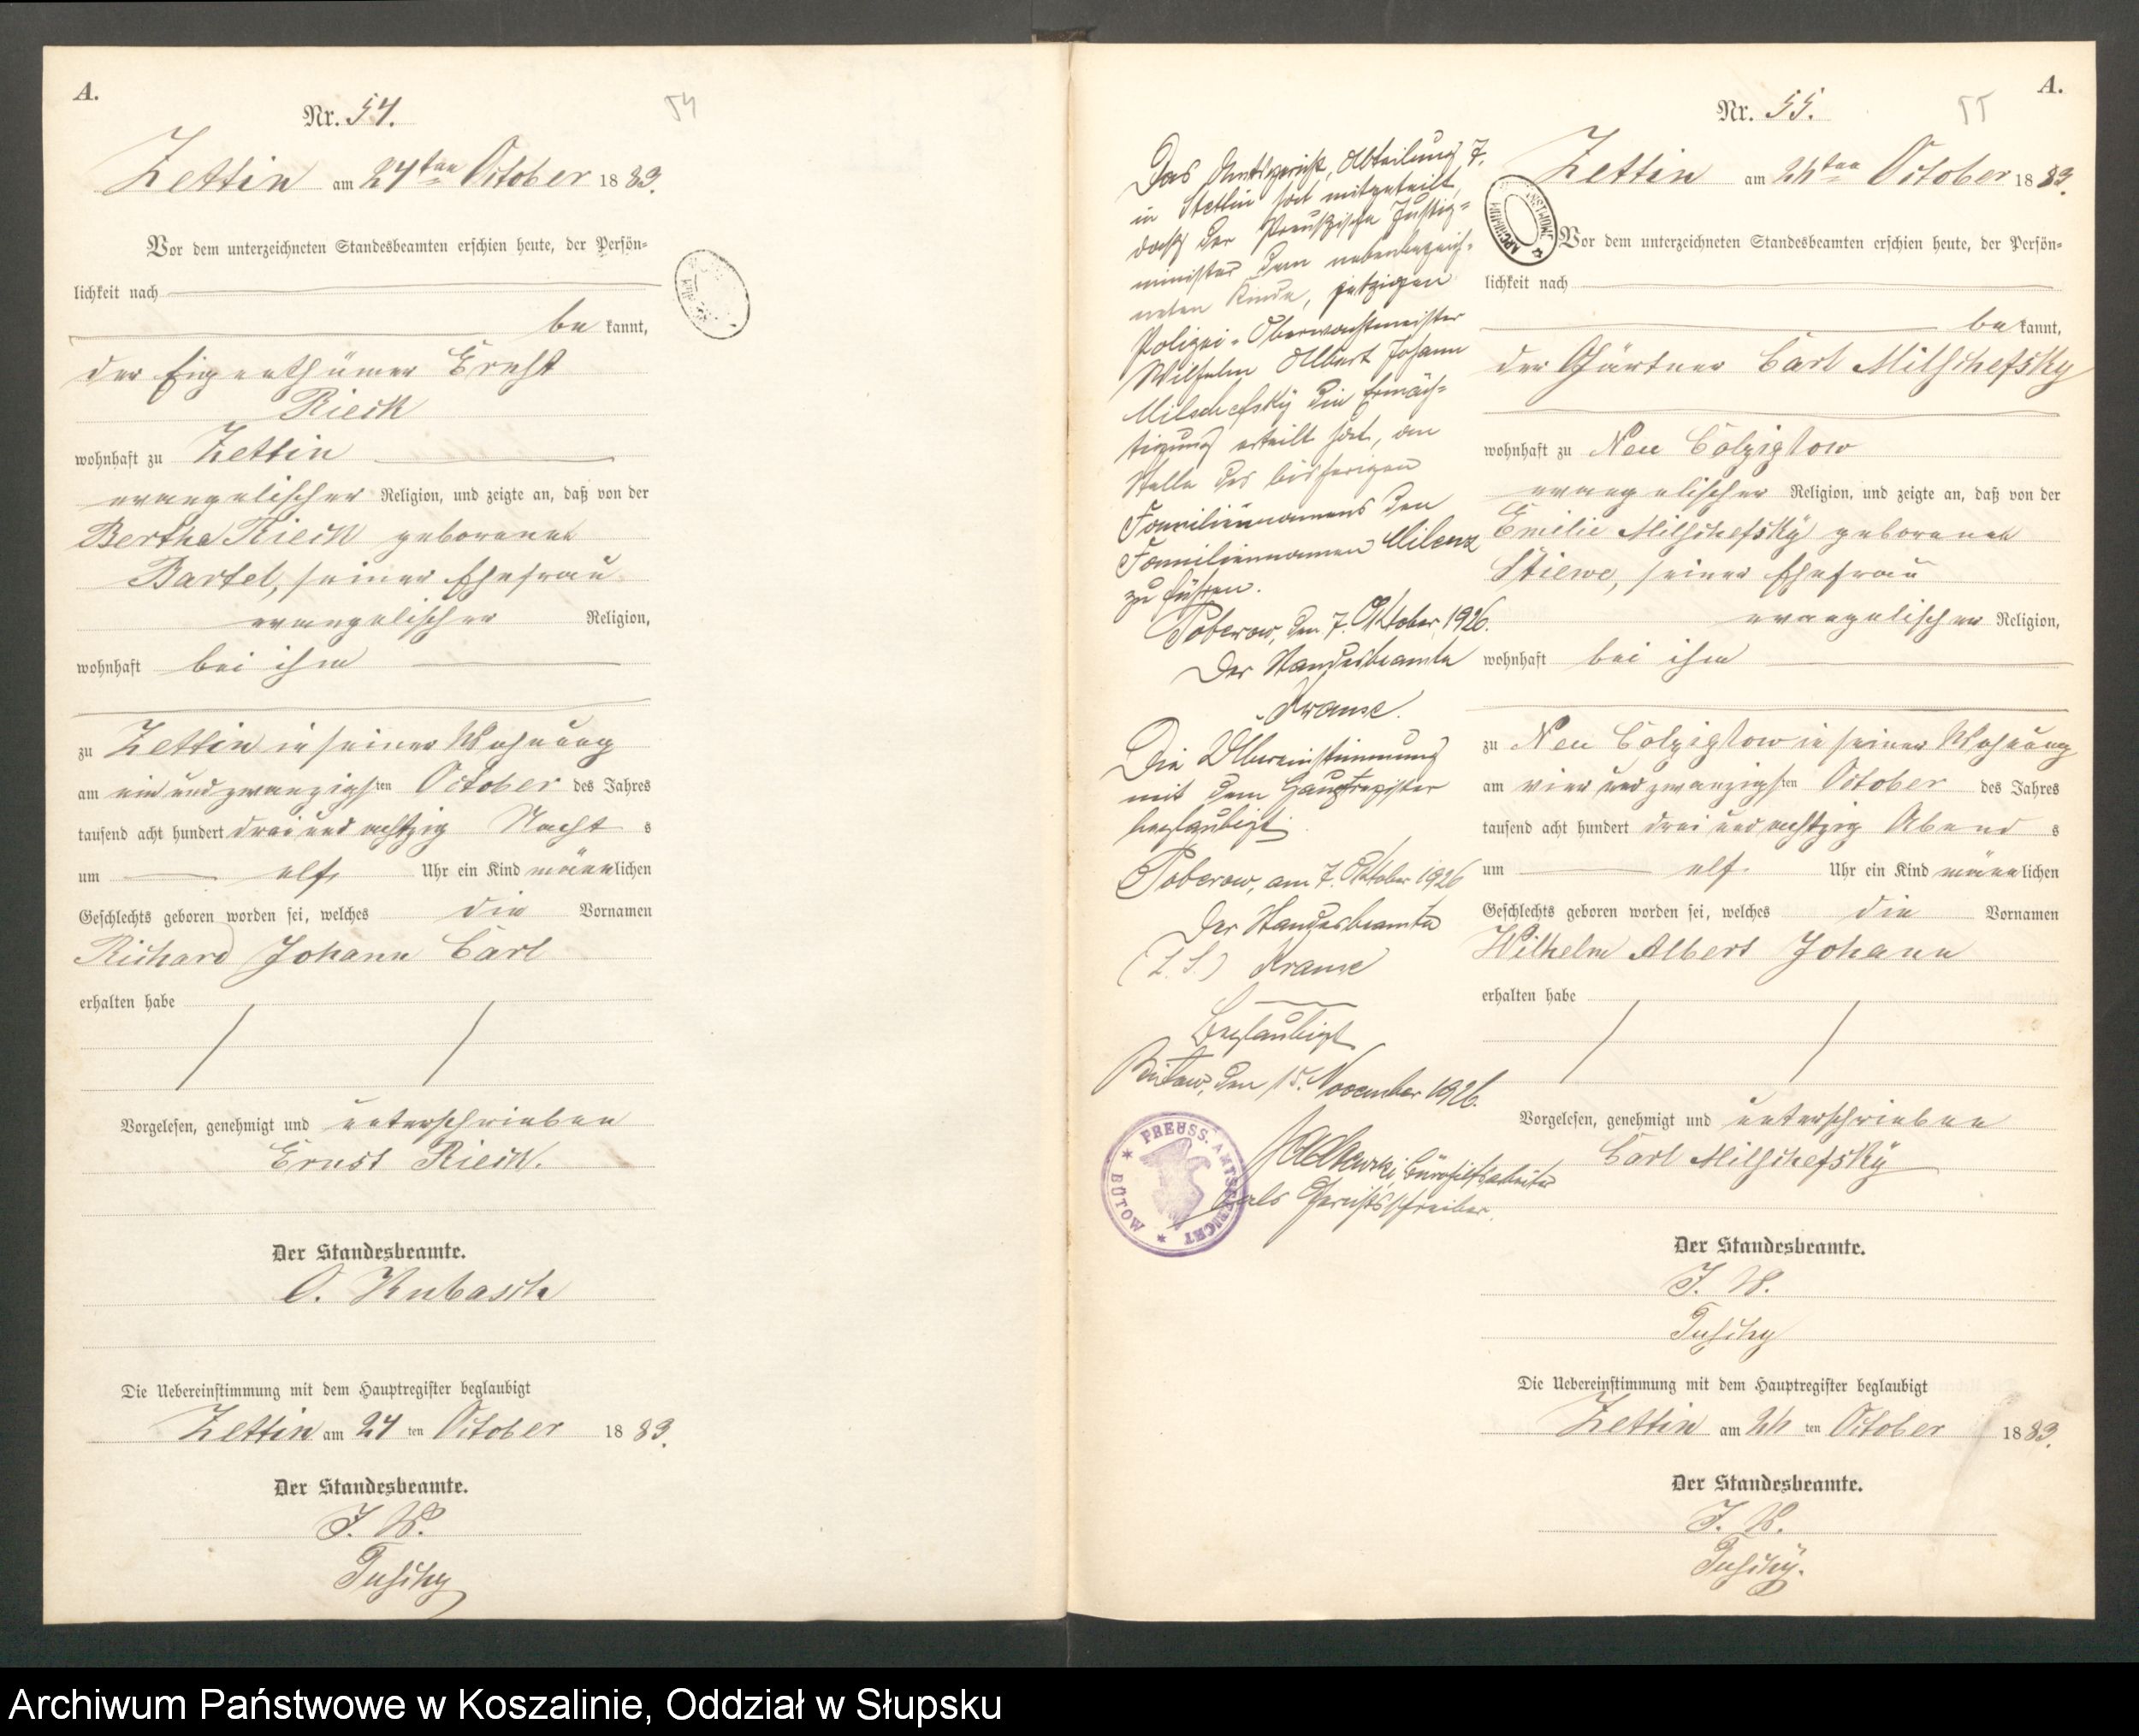 A.
Nr. 54.
54
Zettin am 24ten October 1883.
Vor dem unterzeichneten Standesbeamten erschien heute, der Persön=
lichkeit nach
be kannt,
der Eigenthümer Ernst
Rieck
wohnhaft zu Zettin
evangelischer Religion, und zeigte an, daß von der
Bertha Rieck geborenen
Bartel, seiner Ehefrau
evangelischer Religion,
wohnhaft bei ihm
zu Zettin in seiner Wohnung
am ein und zwanzigsten October des Jahres
tausend acht hundert drei und achtzig Nacht s
um elf Uhr ein Kind männlichen
Geschlechts geboren worden sei, welches die Vornamen
Richard Johann Carl
erhalten habe
Vorgelesen, genehmigt und unterschrieben
Ernst Rieck.
Der Standesbeamte.
O. Kubasch
Die Uebereinstimmung mit dem Hauptregister beglaubigt
Zettin am 24 ten October 1883.
Der Standesbeamte.
J. V.
A.
Nr. 55.
55
Zettin am 24ten October 1883.
Vor dem unterzeichneten Standesbeamten erschien heute, der Persön=
lichkeit nach
be kannt,
der Gärtner Carl Milschefsky
wohnhaft zu Neu Colziglow
evangelischer Religion, und zeigte an, daß von der
Emilie Milschefsky geborenen
Stiewe, seiner Ehefrau
evangelischer Religion,
wohnhaft bei ihm
zu Neu Colziglow in seiner Wohnung
am vier und zwanzigsten October des Jahres
tausend acht hundert drei und achtzig Abend s
um elf Uhr ein Kind männlichen
Geschlechts geboren worden sei, welches die Vornamen
Wilhelm Albert Johann
erhalten habe
Vorgelesen, genehmigt und unterschrieben
Carl Milschefsky
Der Standesbeamte.
J. V.
Die Uebereinstimmung mit dem Hauptregister beglaubigt
Zettin am 24 ten October 1883.
Der Standesbeamte.
J. V.
Das Amtsgericht, Abteilung 7,
in Stettin hat mitgeteilt,
daß der Preußische Justiz=
minister dem nebenbezeich=
neten Kinde, jetzigen
Polizei-Oberwachtmeister
Wilhelm Albert Johann
Milschefsky die Ermäch=
tigung erteilt hat, an
Stelle des bisherigen
Familiennamens den
Familiennamen Milenz
zu führen.
Poberow, den 7. Oktober 1926.
Der Standesbeamte
Krause.
Die Übereinstimmung
mit dem Hauptregister
beglaubigt
Poberow, am 7. Oktober 1926
Der Standesbeamte
(L. S.) Krause
Beglaubigt
Bütow, den 15. November 1926.
Bürohilfsarbeiter
als Gerichtsschreiber.
PREUSS. AMTSGERICHT
BÜTOW
Archiwum Państwowe w Koszalinie, Oddział w Słupsku